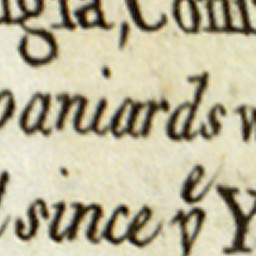 ngla, Com
paniards w
d since yͤ Y